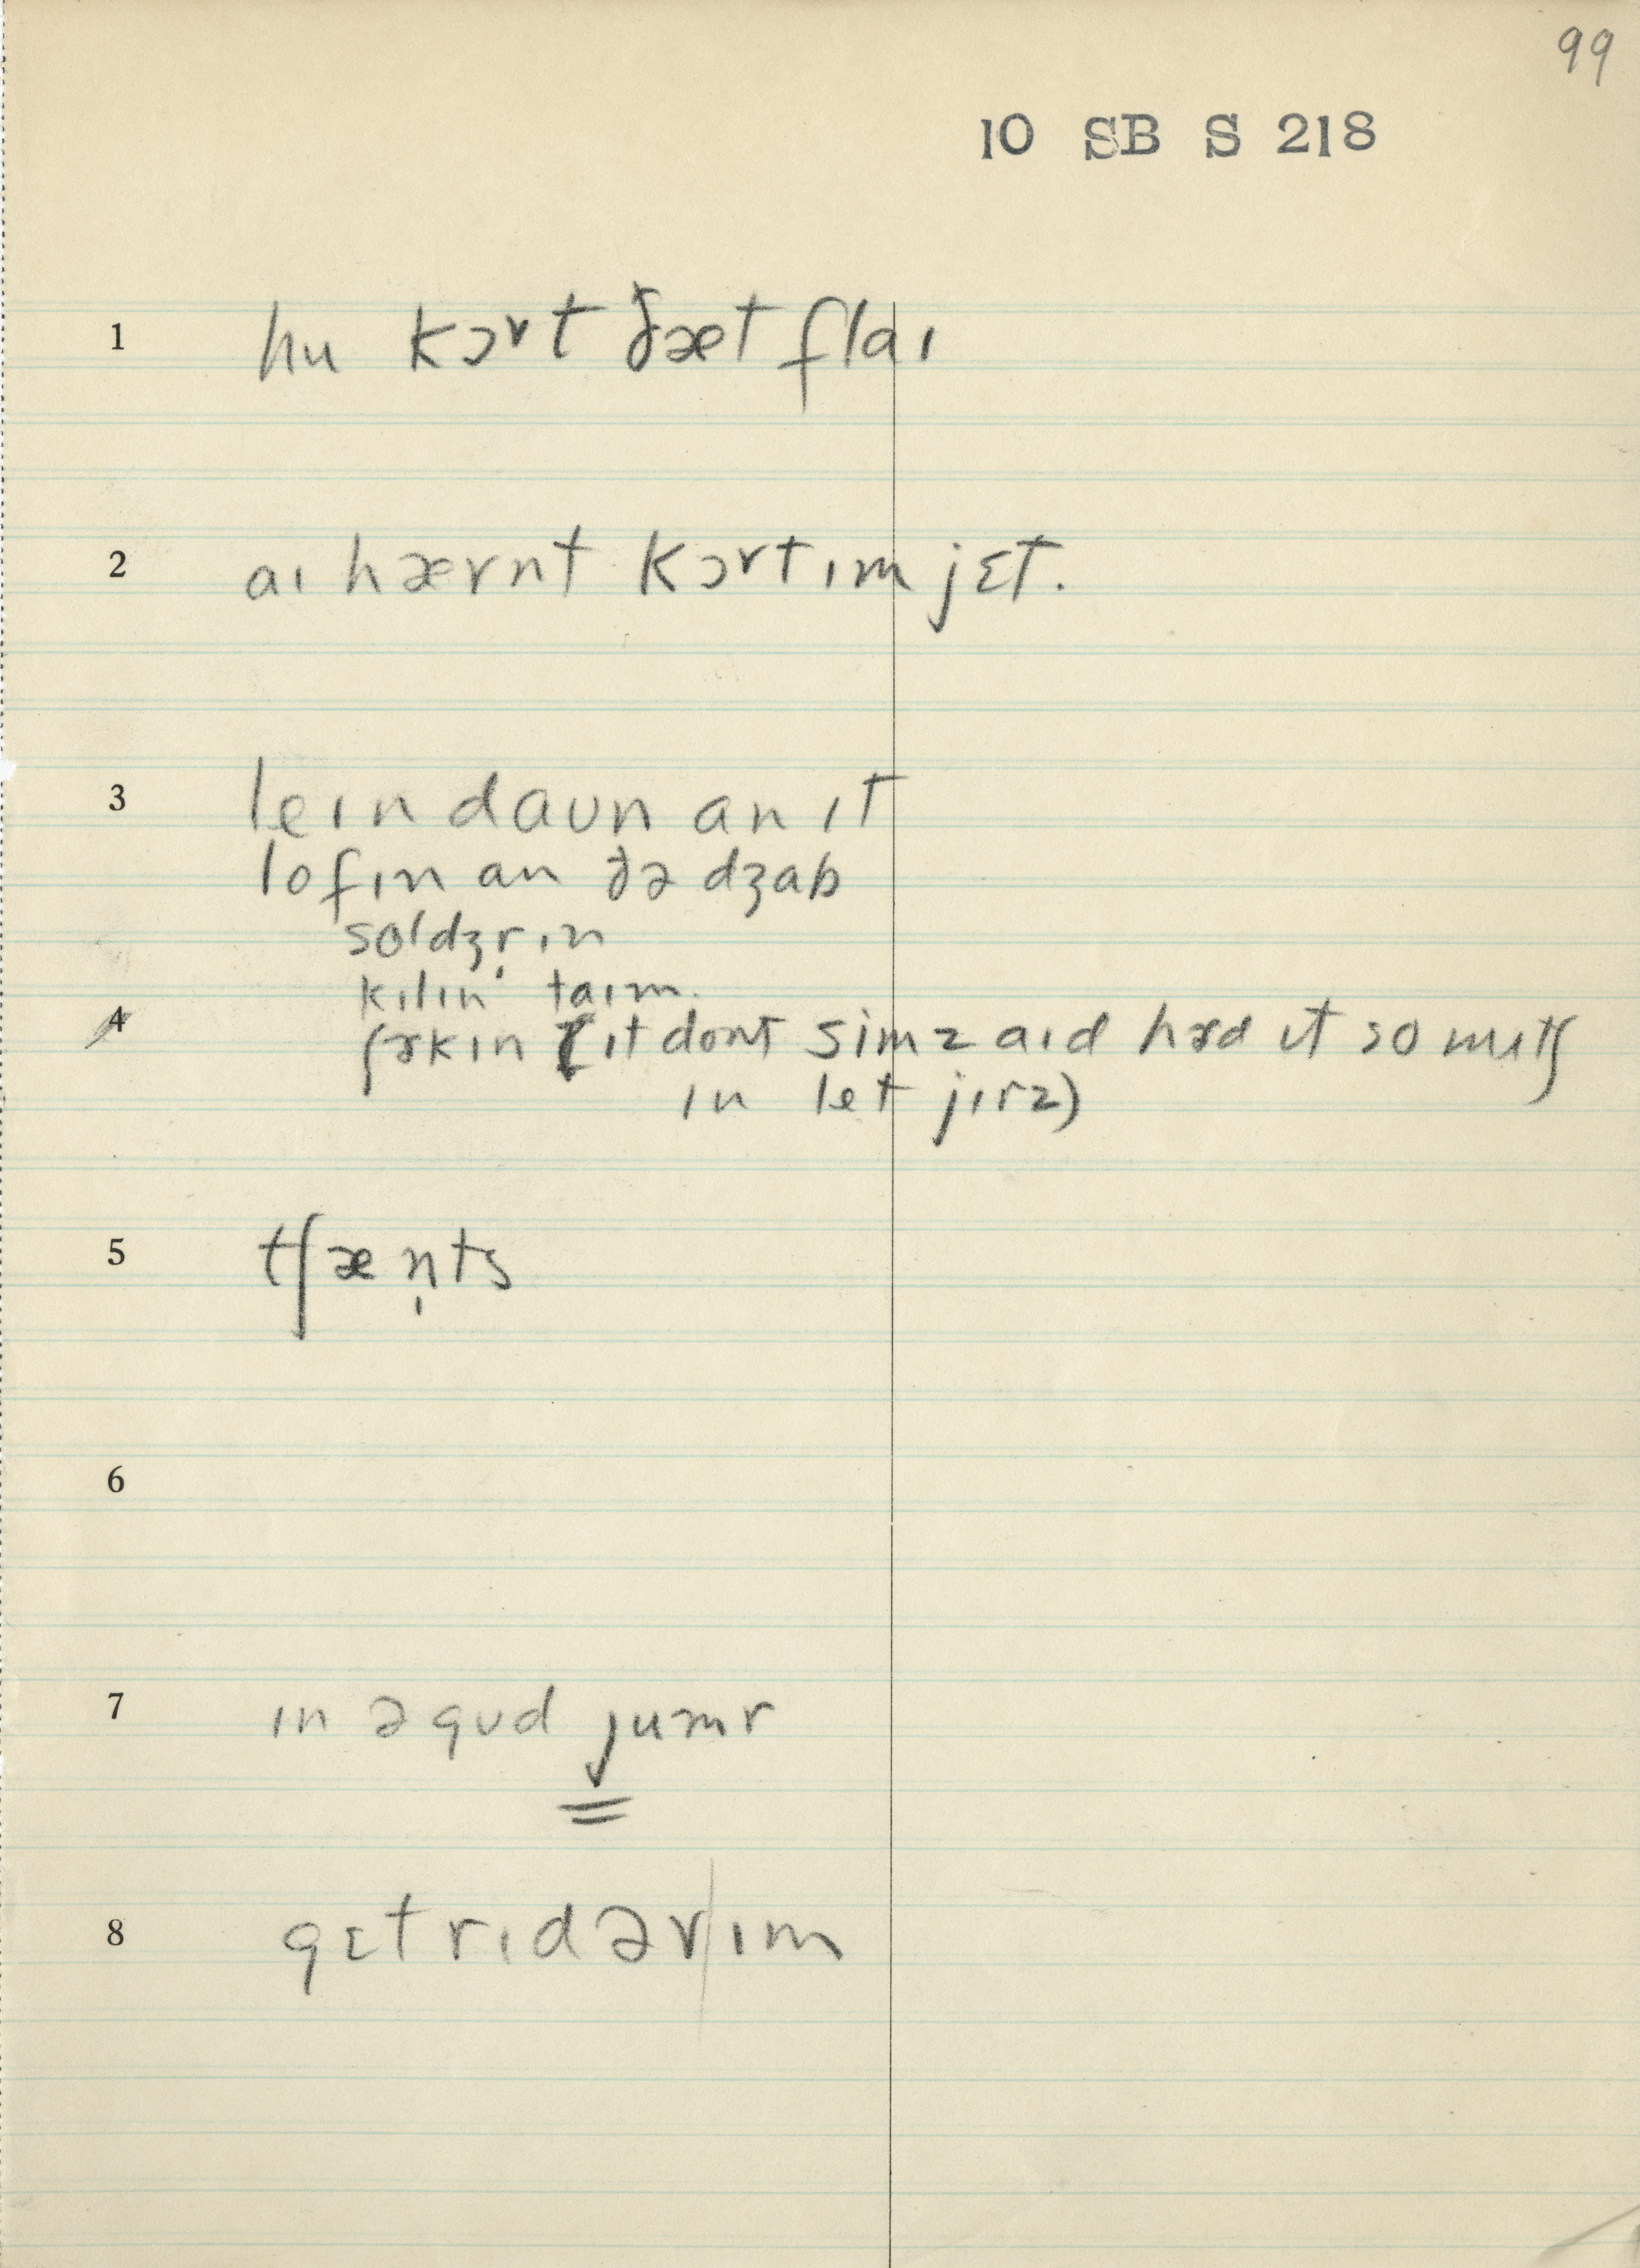 99
10 SB S 218
1 hu kɔrt ðæt flaɪ
2 aɪ hævnt kɔrt ɪm jɛt.
3 leɪn daun an ɪt
lofɪn an ðə dʒab
soldʒr̩ɪn
kɪlɪn taɪm.
4 ɪt dont simz aɪd hɜd ɪt so mutʃ
ɪn let jɪrz)
5 tʃæn̩ts
6
7 ɪn ə gud jumr
8 gɛt rɪd əv ɪm